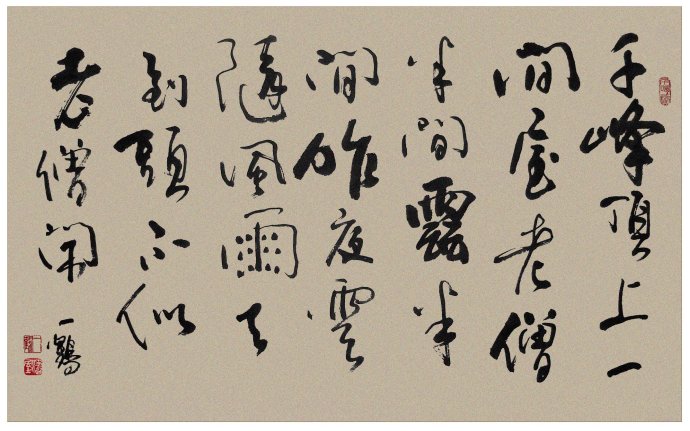 千峰頂上一
間屋老僧
半間半
間昨夜雲
隨風雨去
到頭不似
老僧閑
一